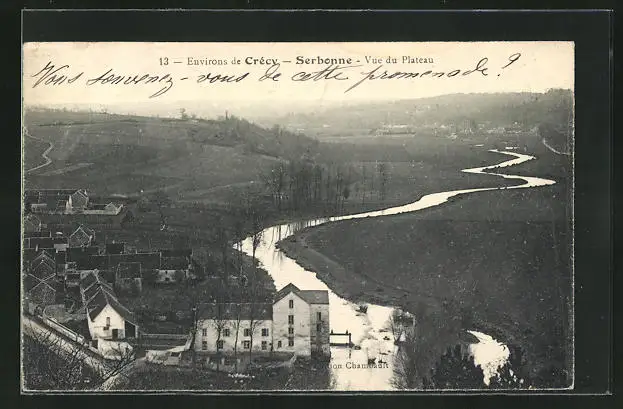 13 - Environs de Crécy. - Serbonne - Vue du Plateau
Vous souvenez-vous de cette promenade?
Chambault